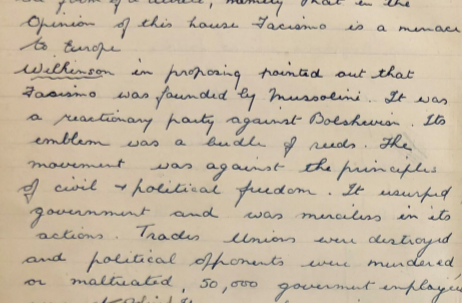 form of a debate, namely that in the
Opinion of this house Facismo is a menace
to Europe
Wilkinson in proposing pointed out that
Facismo was founded by Mussolini. It was
a reactionary party against Bolshevism. Its
emblem was a budle of reeds. The
movement was against the principles
of civil + political freedom. It usurped
government and was merciless in its
actions. Trades Unions were destroyed
and political opponents were murdered
or maltreated, 50,000 goverment employees